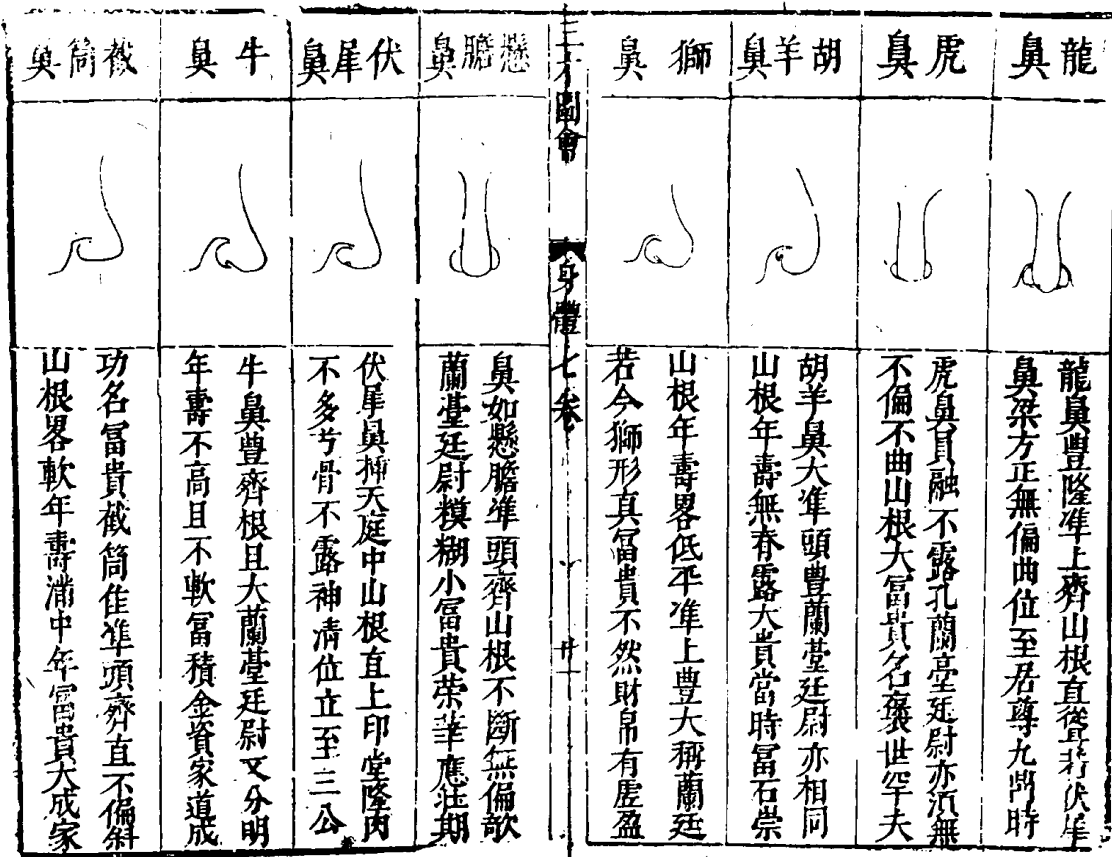 龍鼻
龍鼻豐隆準上齊山根直聳若伏犀
鼻梁方正無偏曲位至居尊九鼎時
虎鼻
虎鼻員融不露孔蘭臺廷尉亦須無
不偏不曲山根大冨貴名褒世罕夫
胡羊鼻
胡羊鼻大準頭豐蘭臺廷尉亦相同
山根年壽無脊露大貴當時冨石崇
獅鼻
山根年壽畧低平準上豐大稱蘭廷
若合獅形真冨貴不然財帛有虛盈
三才圖會
身體七卷
廿一
懸膽鼻
鼻如懸膽準頭齊山根不斷無偏欹
蘭臺廷尉模糊小冨貴荣華應壮期
伏犀鼻
伏犀鼻揷天庭中山根直上印堂隆肉
不多兮骨不露神清位立至三公
牛鼻
牛鼻豐齊根且大蘭臺廷尉又分明
年壽不高且不軟冨積金資家道成
截筒鼻
功名冨貴截筒佳準頭齊直不偏斜
山根畧軟年壽滿中年冨貴大成家